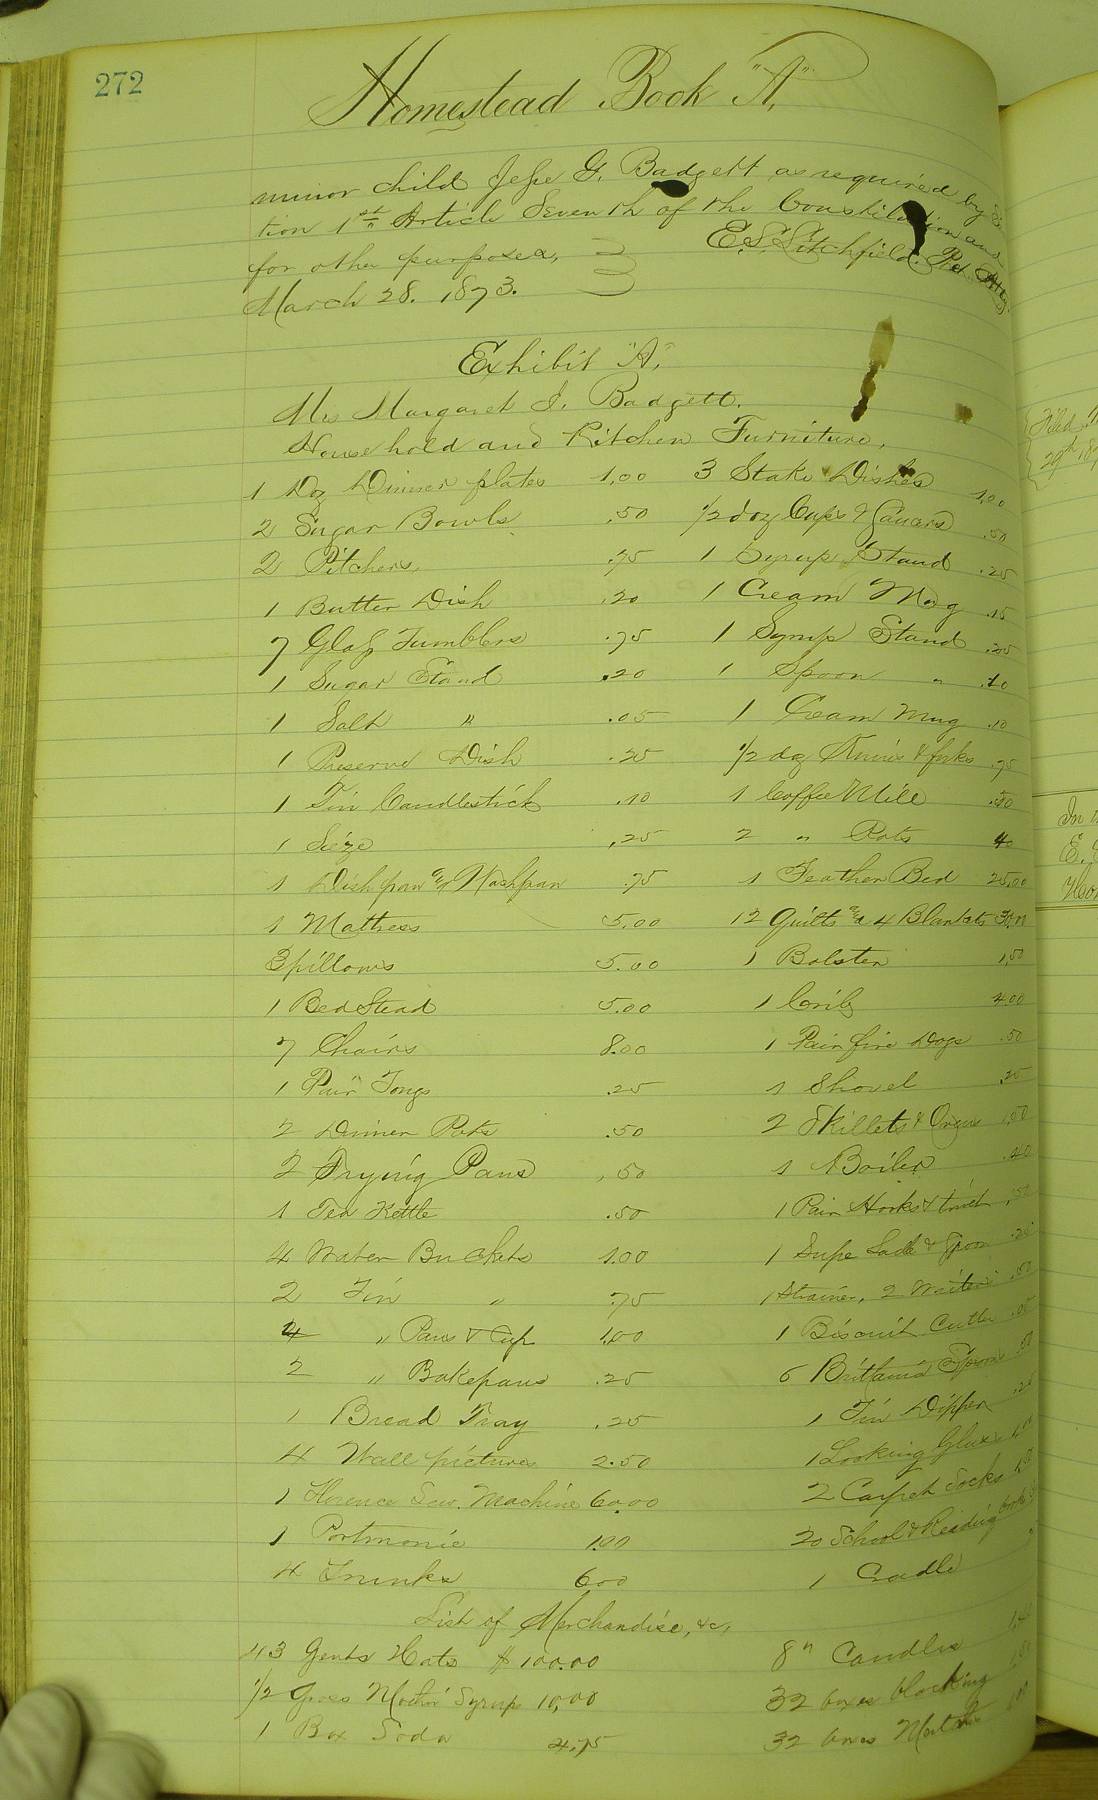 272
Homestead Book "A",
minor child Jesse G. Badgett as required by Sec
tion 1st Article Seventh of the Constitution and
for other purposes, E. S. Litchfield. Pet Atty
March 28. 1873.
Exhibit "A",
Mrs Margaret J. Badgett.
Household and Kitchen Furniture,
1 Doz Dinner plates 1.00 3 Stake Dishes 1.00
2 Sugar Bowls .50 1/2 doz Cups & Saucers .50
2 Pitchers, .75 1 Syrup Stand .25
1 Butter Dish .20 1 Cream Mug .15
7 Glass Tumblers .75 1 Syrup Stand .25
1 Sugar Stand .20 1 Spoon " .10
1 Salt " .05 1 Cream Mug .10
1 Preserve Dish .25 1/2 doz Knives & forks .75
1 Tin Candlestick .10 1 Coffee Mill .50
1 .25 2 " Pots 40
1 Dishpan and Washpan .75 1 Feather Bed 25.00
1 Mattress 5.00 12 Quilts and 4 Blankets 30.00
3 pillows 5.00 1 Bolster 1,50
1 Bed Stead 5.00 1 Crib 4.00
7 Chairs 8.00 1 Pair fire Dogs .50
1 Pair Tongs .25 1 Shovel .25
2 Dinner Pots .50 2 Skillets & Ovens 1.50
2 Frying Pans .50 1 Boiler .40
1 Tea Kettle .50 1 Pair Hooks &
4 Water Buckets 1.00 1 Ladle & Spoon .25
2 Tin " .75 1 Strainer, 2 Waiters .50
4 " Pans & Cup 1.00 1 Biscuit Cutter .05
2 " Bakepans .25 6 Brittania Spoons .50
1 Bread Tray .25 1 Tin Dipper .25
4 Wall pictures 2.50 1 Looking Glass
1 Florence Sew. Machine 60.00 2 Carpet Socks
1 Portmonie 1.00 20 School & Reading books
4 Trunks 6.00 1 Cradle
List of Merchandise, &c,
43 Gents Hats $100.00 8 " Candles
1/2 Gross Syrup 10.00 32 boxes blacking
1 Box Soda 4.75 32 boxes
Filed
In
E.